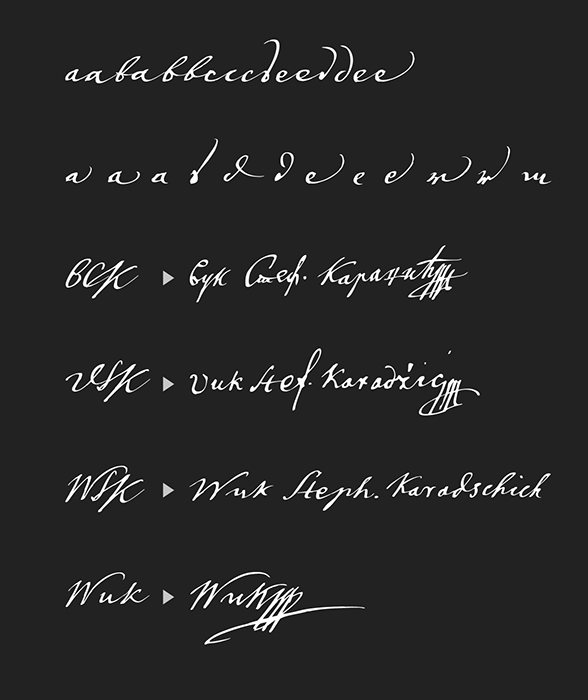 aababbcccbeeddee
a a a b d d e e e n n m
ВСК ▸ Вук Стеф. Караџић
VSK ▸ Vuk Stef. Karadžić
WSK ▸ Wuk Steph. Karadschich
Wuk ▸ Wuk